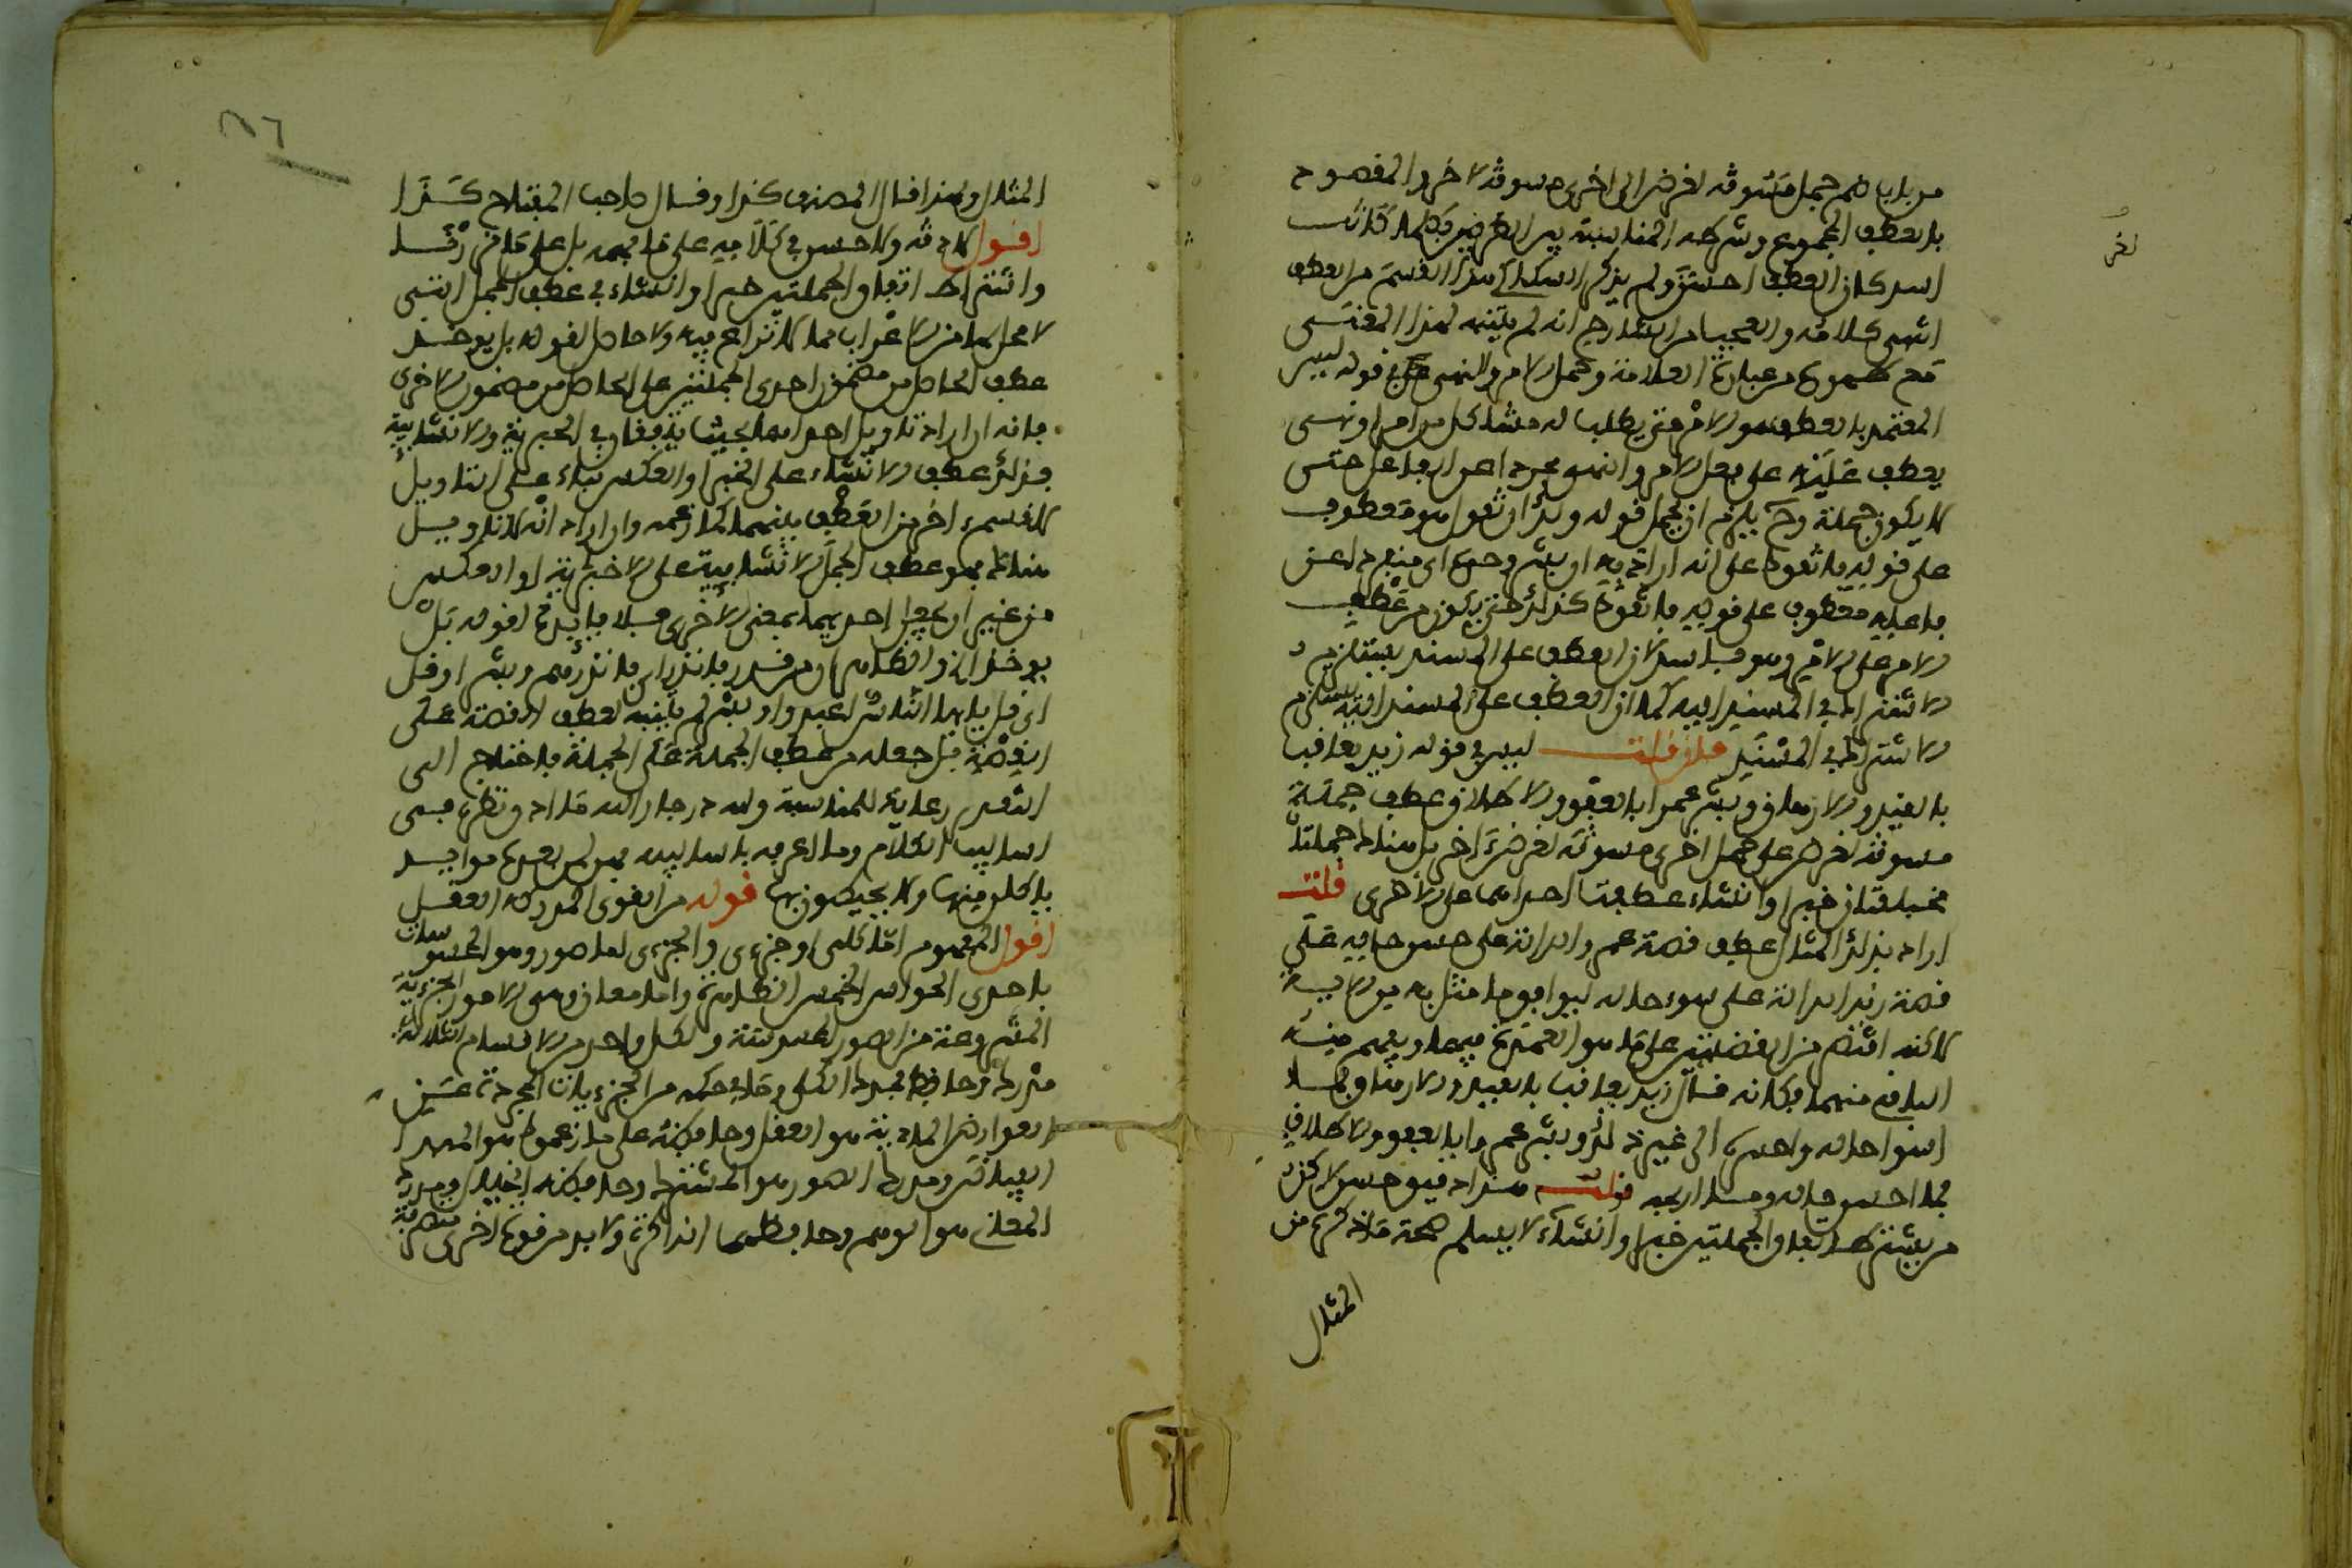 من باب ضم جمل مسوقة لغرض الى اخرى مسوقة لاخر والمقصود
بالعطف المجموع وشرطه المناسبة بين الغرضين فكلما كانت
اشد كان العطف احسن ولم يذكر السكاكي هذا القسم من العطف
انتهى كلامه والعجب من الشارح انه لم يتنبه لهذا المعنى
مع ظهوره من عبارة العلامة وحمل الامر والنهي في قوله ليس
المعتمد بالعطف هو الامر حتى يطلب له مشاكل من امر او نهي
يعطف عليه على فعل الامر والنهي مجردا عن الفاعل حتى
لا يكون جملة وح يلزم ان يحمل قوله ولك ان تقول هو معطوف
على قوله فاتقوا على انه اراد به ان بشر وحده اي منفردا عن
فاعله معطوف على قوله فاتقوا كذلك حتى يكون من عطف
الامر على الامر وهو فاسد لان العطف على المسند يستلزم
الاشتراك في المسند اليه كما ان العطف على المسند اليه يستلزم
الاشتراك في المسند فان قلت ليس في قوله زيد يعاقب
بالقيد والارهاق وبشر عمرا بالعفو والاطلاق عطف جملة
مسوقة لغرض على جمل اخرى مسوقة لغرض اخر بل هناك جملتان
مختلفتان خبرا وانشاء عطفت احداهما على الاخرى قلت
اراد بذلك المثال عطف قصة عمرو الدالة على حسن حاله على
قصة زيد الدالة على سوء حاله ليوافق ما مثل به من الاية
لاكنه اقتصر من القصتين على ما هو العمدة فيهما ويفهم منه
الباقي منهما فكانه قال زيد يعاقب بالقيد والارهاق فما
اسوا حاله واخسره الى غير ذلك وبشر عمرا بالعفو والاطلاق
فما احسن حاله وما اربحه قوله هذا دقيق حسن لاكن
من يشترط اتفاق الجملتين خبرا وانشاء لا يسلم صحة ما ذكره من
المثال
اخرى
المثال ولهذا قال المصنف كذا وقال صاحب المفتاح كذا
اقول لا دقة ولا حسن في كلامه على ما فهمه بل على ما قررنا
واشتراط اتفاق الجملتين خبرا وانشاء في عطف الجمل التي
لا محل لها من الاعراب مما لا نزاع فيه ولا حاصل لقوله بل يوخذ
عطف الحاصل من مضمون احدى الجملتين على الحاصل من مضمون الاخرى
فانه ان اراد تاويل احداهما بحيث يتفقان في الخبرية والانشائية
فذلك عطف الانشاء على الخبر او العكس بناء على التاويل
لا قسم اخر من العطف بينهما كما زعمه وان اراد انه لا تاويل
هناك فهو عطف الجمل الانشائية على الاخبارية او العكس
من غير ان يجعل احديهما بمعنى الاخرى فلا فائدة لقوله بل
يوخذ الخ والظاهر ان من قدر فانذر اي فانذرهم وبشر او قل
اي قل يا ايها الناس اعبدوا وبشر لم يتنبه لعطف القصة على
القصة بل جعله من عطف الجملة على الجملة فاحتاج الى
التقدير رعاية للمناسبة ولله در جار الله ما ادق نظره في
اساليب الكلام وما اعرفه باساليبه
ياكلون منها ولا يحيطون بها قوله من القوى المدركة العقل
اقول المفهوم اما كلي او جزءي والجزءي اما صور وهو المحسوسات
باحدى الحواس الخمس الظاهرة واما معان وهي الامور الجزئية
المنتزعة من الصور المحسوسة ولكل واحد من الاقسام الثلاثة
مدرك وحافظ فمدرك الكلي وما في حكمه من الجزءيات المجردة عن
العوارض المادية هو العقل وحافظه على ما زعموا هو المبدا
الفياض ومدرك الصور هو الحس المشترك وحافظه الخيال ومدرك
المعاني هو الوهم وحافظها الذاكرة ولا بد من قوة اخرى متصرفة